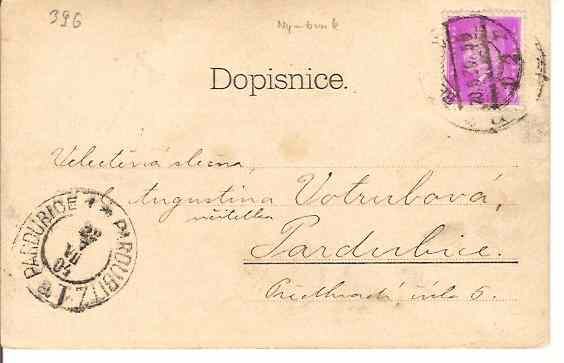 396
Nymburk
Dopisnice.
Velectěná slečna,
Augustina Votrubová,
učitelka
Pardubice.
Předhradí 6.
PARDUBICE 1 * PARDUBITZ 1
VII
04